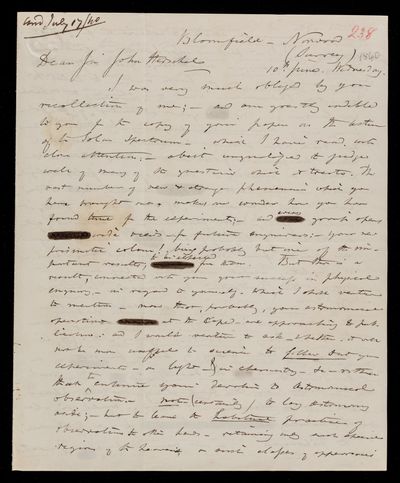 and July 17/40
Bloomfield – Norwood
(Surrey) 238
1840
Dear Sir John Herschel 10th June, Wednesday.
I was very much obliged by your
recollection of me; – and am greatly indebted
to you for the copy of your paper on the action
of the Solar Spectrum – which I have read with
close attention; – albeit unqualified to judge
well of many of the questions which it treats. The
vast number of new & strange phenomena which you
have brought out makes me wonder how you have
found time for the experiments; – and great
for future enquirers; – your new
prismatic colour! being probably but one of the im-
portant results, to be expected from them. But there is a
result, connected with your in physical
enquiry, – in regard to yourself – which I shall venture
to mention – now that, probably, your astronomical
operations at the Cape are approaching to pub-
lication: and I would venture to ask – whether it will
not be more useful to science to follow out your
experiments – on light – & in chemistry – &c – rather
than continue your devotion to Astronomical
observation – not (certainly) to lay astronomy
aside; – but to leave the habitual practice of
observation to other hands – retaining only such
regions of the heavens, or such classes of appearances